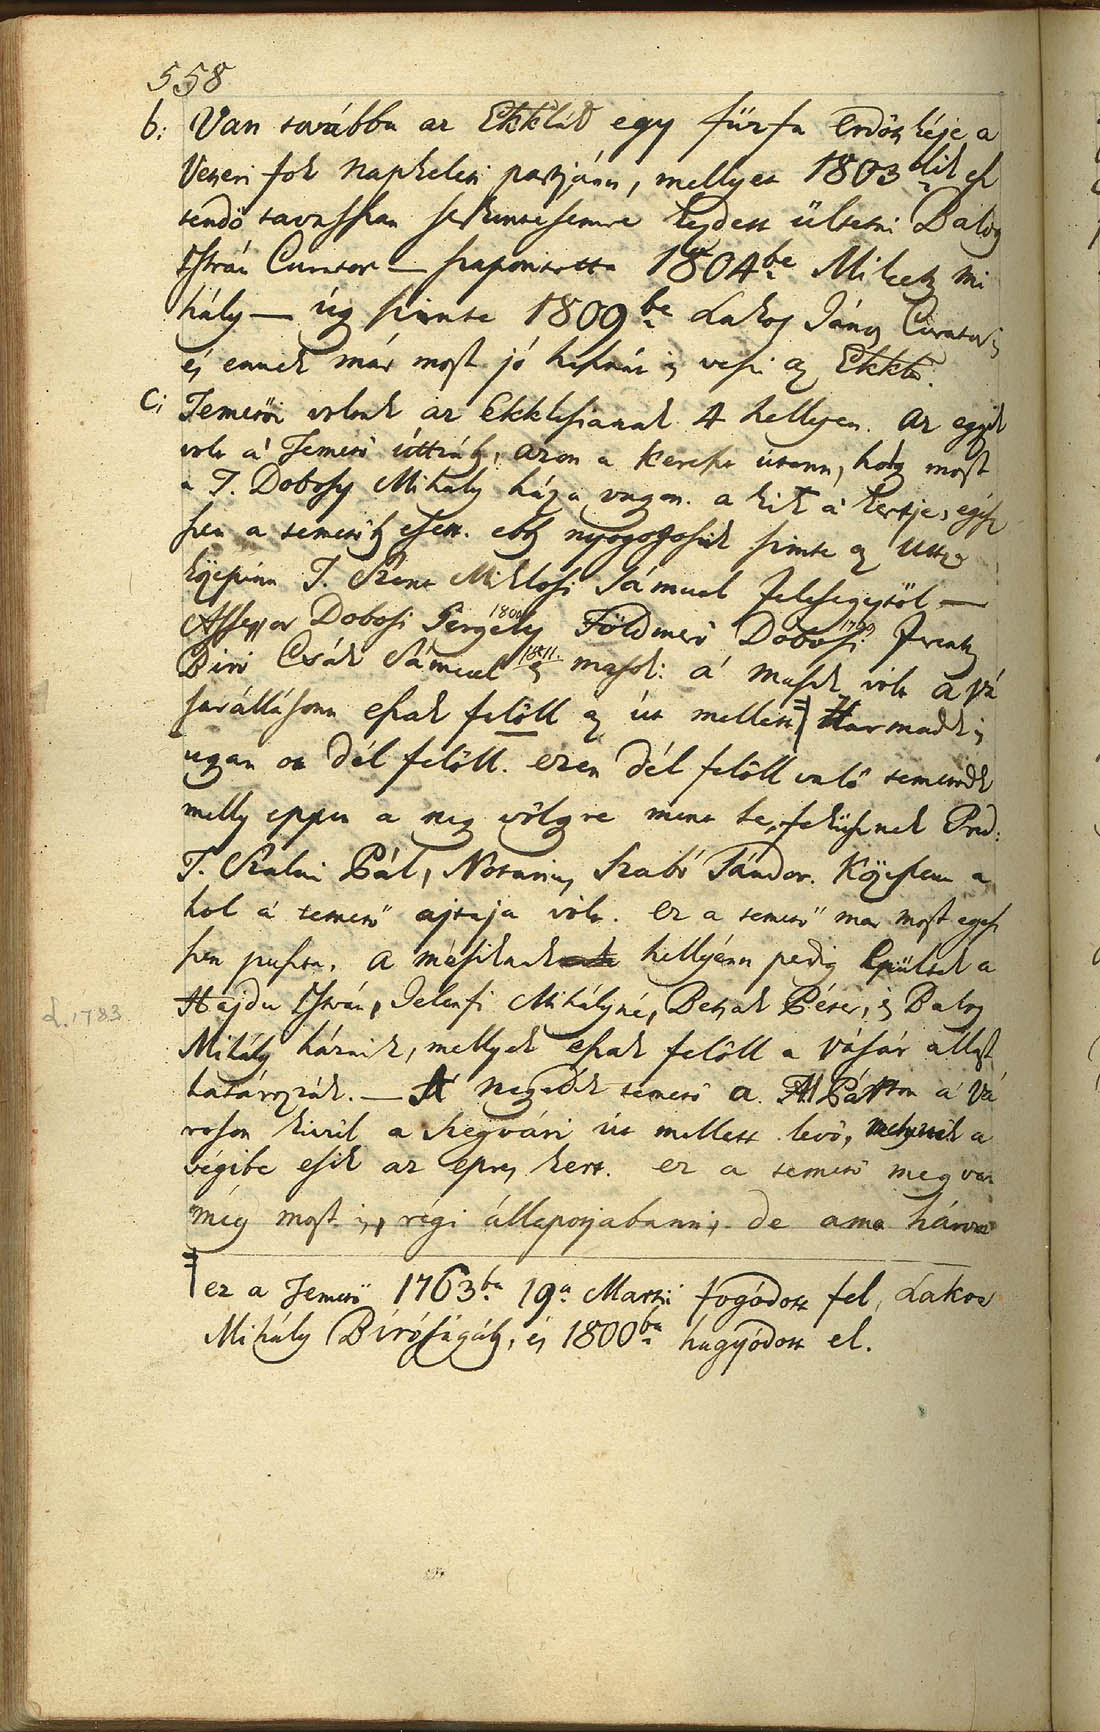 558
b: Van továbbá az Ekklának egy fűzfa Erdőtskéje a
Vekeri fok napkeleti partjánn, mellyet 1803dik esz
tendő tavasszán kezdett ültetni Balog
István Curator — szaporította 1804be Miletz Mi
hály — úgy szinte 1809be Lakos János Curator is
és ennek már most jó hasznát is veszi az Ekkla.
C; Temetői voltak az Ekklesianak 4 hellyen. Az egyik
volt a' Temető úttzáb, azon a Kereszt útonn, hol most
a T. Dobosy Mihály háza vagyon. a kit a' kertje, égész
szen a temetőb esett. ebb nyugosznak szinte az Uttza
közepénn T. Szent Miklósi Sámuel feleségestől —
Asszony Dobosi Gergely 1800 Földmérő Dobosi 1799 Ferentz
Biró Csák Sámuel 1811. és mások: a' másik volt a Vá
sárállásonn észak felöll az út mellett ǂ Harmadik is
ugyan ott dél felöll. ezen dél felöll való temetőbe
melly éppen a nagy völgyre ment le, feküsznek Préd:
T. Szalai Pál, Notarius Szabó Sándor. Középenn a
hol a' temető ajtaja volt. ez a temető már most egész
szen puszta. a másiknak hellyénn pedig épültek a
Hajdu István, Jelenfi Mihályné, Betsak Péter, és Balog
L. 1783.
Mihály házaik, mellyek észak felöll a Vásár állást
határozzák. — A' negyedik temető a Párton a' Vá
roson kivül a Szegvári út mellett levő, mellynek a
végibe esik az epres kert. ez a temető meg van
még most is, régi állapotjábann, de ama három
ǂ ez a Temető 1763ba 19a Martii fogódott fel, Lakos
Mihály Bíróságáb, és 1800ba hagyódott el.